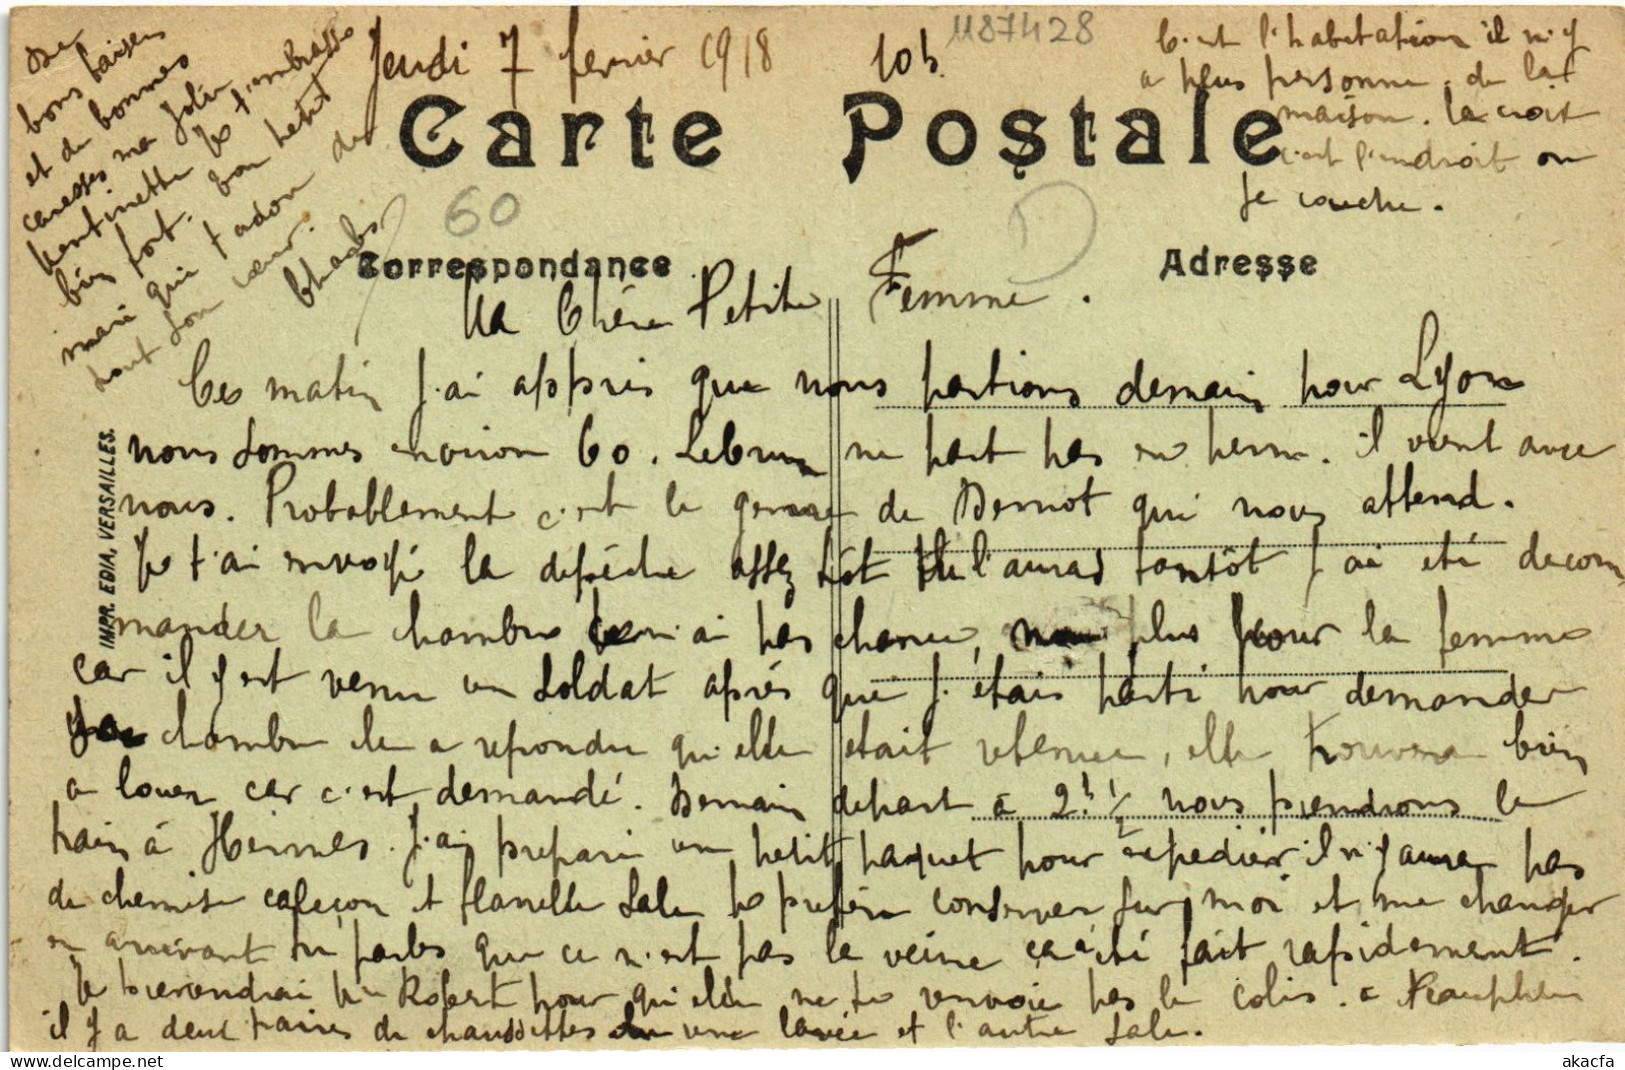 Jeudi 7 fevrier 1918 10h.
1187428
C'est l'habitation il n'y
a plus personne de la
maison. la croix
c'est l'endroit ou
je couche.
Carte Postale
60
Correspondance
Adresse
Ma Chère Petite Femme.
Ces matin j'ai appris que nous partions demain pour Lyon
nous sommes environ 60. Lebrun ne part pas en perm. il vient avec
nous. Probablement c'est le genre de Bernot qui nous attend.
Je t'ai envoyé la depéche assez tôt tu l'auras tantôt j'ai été decom
mander la chambre je n'ai pas chance, plus pour la femme
car il y est venu un soldat après que j'étais parti pour demander
chambre elle a repondu qu'elle etait retenue, elle trouvera bien
a louer car c'est demandé. Demain depart à 2h 1/2 nous prendrons le
train à Hermes. J'ai preparé un petit paquet pour expedier il n'y aura pas
de chemise caleçon et flanelle sale je prefère conserver sur moi et me changer
en arrivant tu parles que ce n'est pas la veine ça a été fait rapidement.
Je previendrai Robert pour qu'elle ne te renvoie pas le colis.
il y a deux paires de chaussettes une lavée et l'autre sale.
De
bons baisers
et de bonnes
caresses ma jolie
je t'embrasse
bien fort. ton petit
mari qui t'adore de
tout son cœur.
Charles
IMPR. EDIA, VERSAILLES.
akacfa